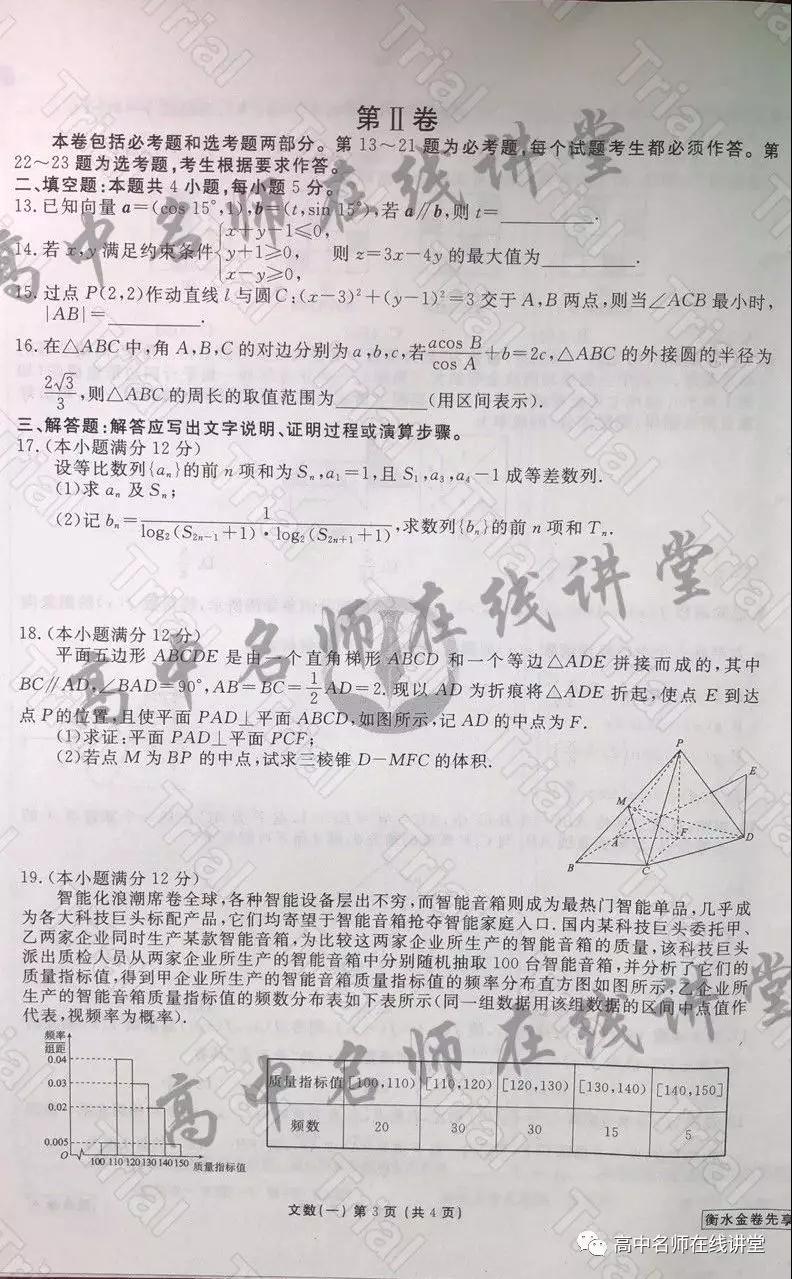 第Ⅱ卷
本卷包括必考题和选考题两部分。第 13～21 题为必考题,每个试题考生都必须作答。第
22～23 题为选考题,考生根据要求作答。
二、填空题:本题共 4 小题,每小题 5 分。
13.已知向量 a=(cos 15°,1),b=(t,sin 15°),若 a∥b,则 t=________.
14.若 x,y 满足约束条件{x+y-1≤0, y+1≥0, x-y≥0, 则 z=3x-4y 的最大值为________.
15.过点 P(2,2)作动直线 l 与圆 C:(x-3)²+(y-1)²=3 交于 A,B 两点,则当∠ACB 最小时,
|AB|=________.
16.在△ABC 中,角 A,B,C 的对边分别为 a,b,c,若 acos B/cos A +b=2c,△ABC 的外接圆的半径为
2√3/3,则△ABC 的周长的取值范围为________(用区间表示).
三、解答题:解答应写出文字说明、证明过程或演算步骤。
17.(本小题满分 12 分)
设等比数列{aₙ}的前 n 项和为 Sₙ,a₁=1,且 S₁,a₃,a₄-1 成等差数列.
(1)求 aₙ 及 Sₙ;
(2)记 bₙ=1/(log₂(S₂ₙ₋₁+1)·log₂(S₂ₙ₊₁+1)),求数列{bₙ}的前 n 项和 Tₙ.
18.(本小题满分 12 分)
平面五边形 ABCDE 是由一个直角梯形 ABCD 和一个等边△ADE 拼接而成的,其中
BC∥AD,∠BAD=90°,AB=BC=1/2 AD=2.现以 AD 为折痕将△ADE 折起,使点 E 到达
点 P的位置,且使平面 PAD⊥平面 ABCD,如图所示,记 AD 的中点为 F.
(1)求证:平面 PAD⊥平面 PCF;
(2)若点 M 为 BP 的中点,试求三棱锥 D-MFC 的体积.
P
E
M
A
F
D
B
C
19.(本小题满分 12 分)
智能化浪潮席卷全球,各种智能设备层出不穷,而智能音箱则成为最热门智能单品,几乎成
为各大科技巨头标配产品,它们均寄望于智能音箱抢夺智能家庭入口.国内某科技巨头委托甲、
乙两家企业同时生产某款智能音箱,为比较这两家企业所生产的智能音箱的质量,该科技巨头
派出质检人员从两家企业所生产的智能音箱中分别随机抽取 100 台智能音箱,并分析了它们的
质量指标值,得到甲企业所生产的智能音箱质量指标值的频率分布直方图如图所示,乙企业所
生产的智能音箱质量指标值的频数分布表如下表所示(同一组数据用该组数据的区间中点值作
代表,视频率为概率).
频率/组距
0.04
0.03
0.02
0.005
O 100 110 120 130 140 150 质量指标值
质量指标值 [100,110) [110,120) [120,130) [130,140) [140,150]
频数 20 30 30 15 5
文数(一) 第 3 页(共 4 页)
衡水金卷先享
高中名师在线讲堂
高中名师在线讲堂
高中名师在线讲堂
高中名师在线讲堂
Trial